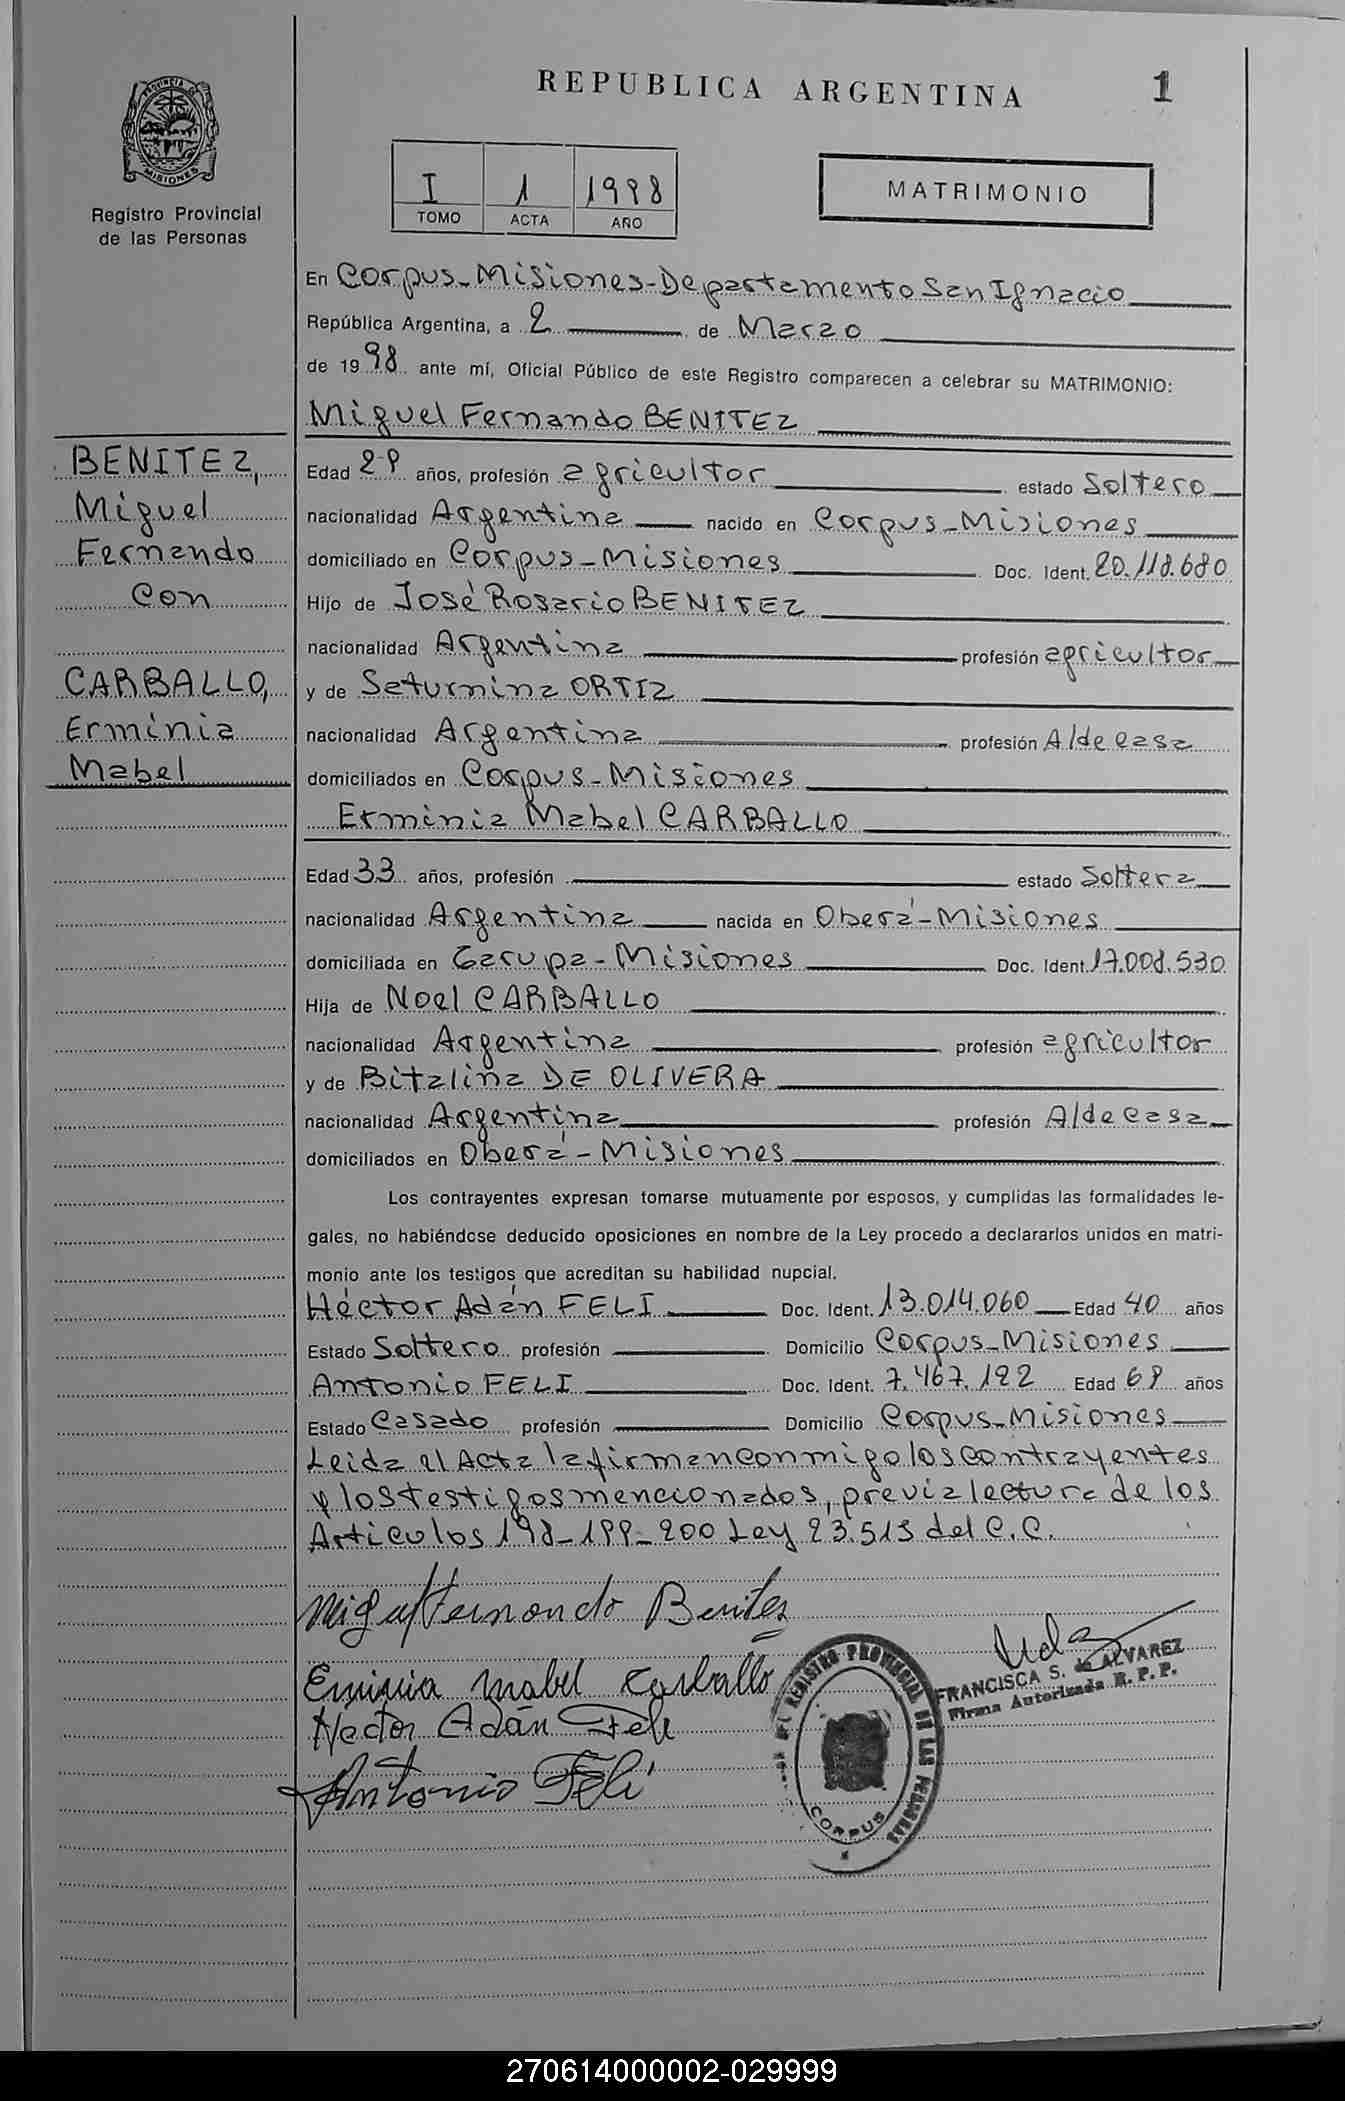 REPUBLICA ARGENTINA
1
PROVINCIA DE
MISIONES
Registro Provincial
de las Personas
I 1 1998
TOMO ACTA AÑO
MATRIMONIO
En Corpus-Misiones-Departamento San Ignacio
República Argentina, a 2 de Marzo
de 1998 ante mí, Oficial Público de este Registro comparecen a celebrar su MATRIMONIO:
Miguel Fernando BENITEZ
BENITEZ,
Miguel
Fernando
Con
CARBALLO,
Erminia
Mabel
Edad 29 años, profesión agricultor estado Soltero
nacionalidad Argentina nacido en Corpus-Misiones
domiciliado en Corpus-Misiones Doc. Ident. 20.118.680
Hijo de José Rosario BENITEZ
nacionalidad Argentina profesión agricultor
y de Saturnina ORTIZ
nacionalidad Argentina profesión A/de casa
domiciliados en Corpus-Misiones
Erminia Mabel CARBALLO
Edad 33 años, profesión estado Soltera
nacionalidad Argentina nacida en Oberá-Misiones
domiciliada en Garupa-Misiones Doc. Ident. 17.008.530
Hija de Noel CARBALLO
nacionalidad Argentina profesión agricultor
y de Bitalina DE OLIVERA
nacionalidad Argentina profesión A/de casa
domiciliados en Oberá-Misiones
Los contrayentes expresan tomarse mutuamente por esposos, y cumplidas las formalidades le-
gales, no habiéndose deducido oposiciones en nombre de la Ley procedo a declararlos unidos en matri-
monio ante los testigos que acreditan su habilidad nupcial.
Héctor Adán FELI Doc. Ident. 13.014.060 Edad 40 años
Estado Soltero profesión Domicilio Corpus-Misiones
Antonio FELI Doc. Ident. 7.467.122 Edad 69 años
Estado Casado profesión Domicilio Corpus-Misiones
Leida el Acta la firman conmigo los contrayentes
y los testigos mencionados, previa lectura de los
Artículos 198-199-200 Ley 23.515 del C.C.
Miguel Fernando Benitez
Erminia Mabel Carballo
Hector Adán Feli
Antonio Feli
REGISTRO PROVINCIAL DE LAS PERSONAS
CORPUS
FRANCISCA S. de ALVAREZ
Firma Autorizada R.P.P.
270614000002-029999